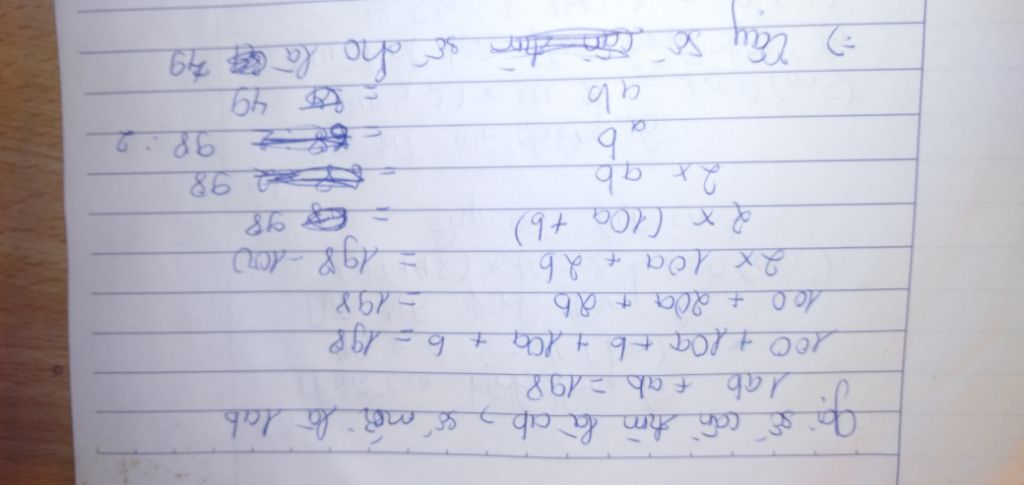 Gọi số cần tìm là ab, số mới là 1ab
1ab + ab = 198
100 + 10a + b + 10a + b = 198
100 + 20a + 2b = 198
2 x 10a + 2b = 198 - 100
2 x (10a + b) = 98
2 x ab = 98
ab = 98 : 2
ab = 49
=> Vậy số số cho là 49